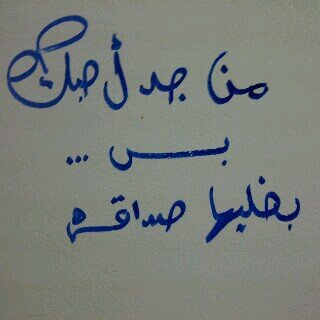 من جد أحبك
بس ...
بخليها صداقه